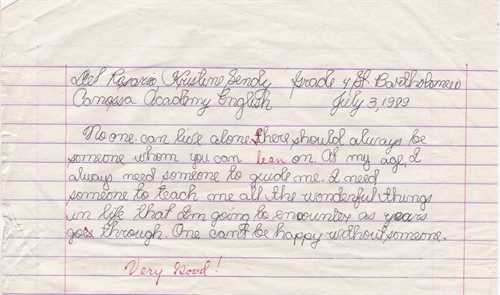 Del Rosario Kristine Sendy Grade 4 St Bartholomew
Canossa Academy English July 3, 1989
No one can live alone. There should always be
someone whom you can lean on. At my age, I
always need someone to guide me. I need
someone to teach me all the wonderful things
in life that I'm going to encounter as years
go through. One can't be happy without someone.
Very Good!